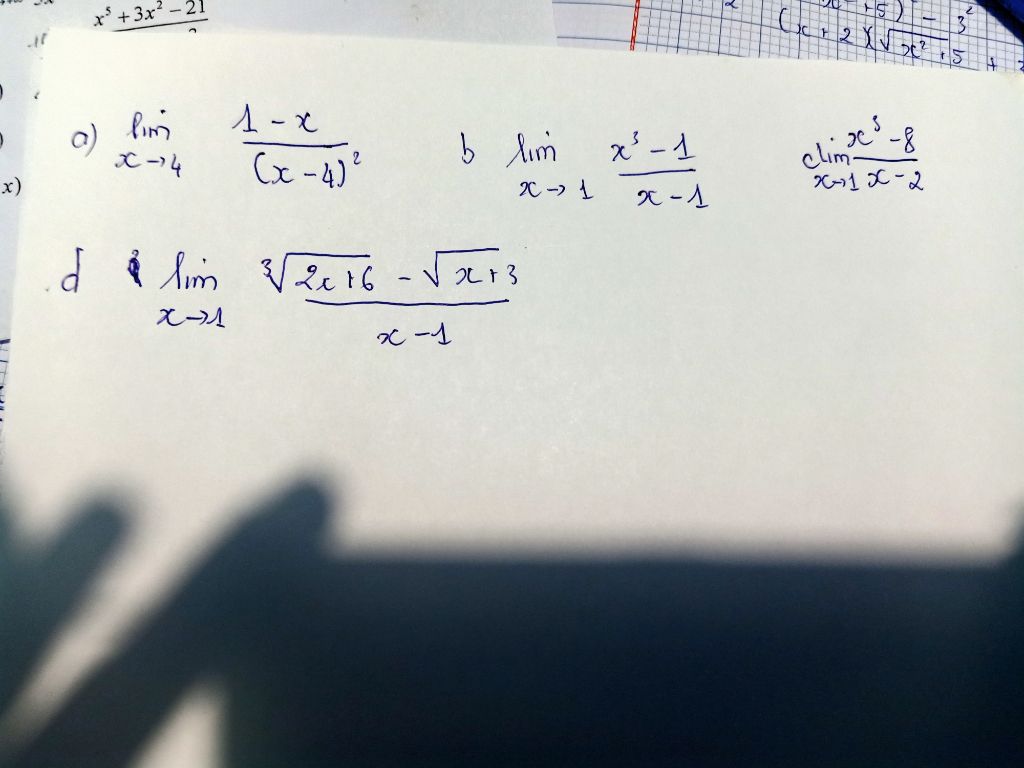 x⁵ + 3x² − 21
(x + 2)(√x² + 5 +
3²
x)
a) lim x→4 1 − x / (x − 4)²
b lim x→1 x³ − 1 / x − 1
c lim x→1 x³ − 8 / x − 2
d lim x→1 ∛2x+6 − √x+3 / x − 1